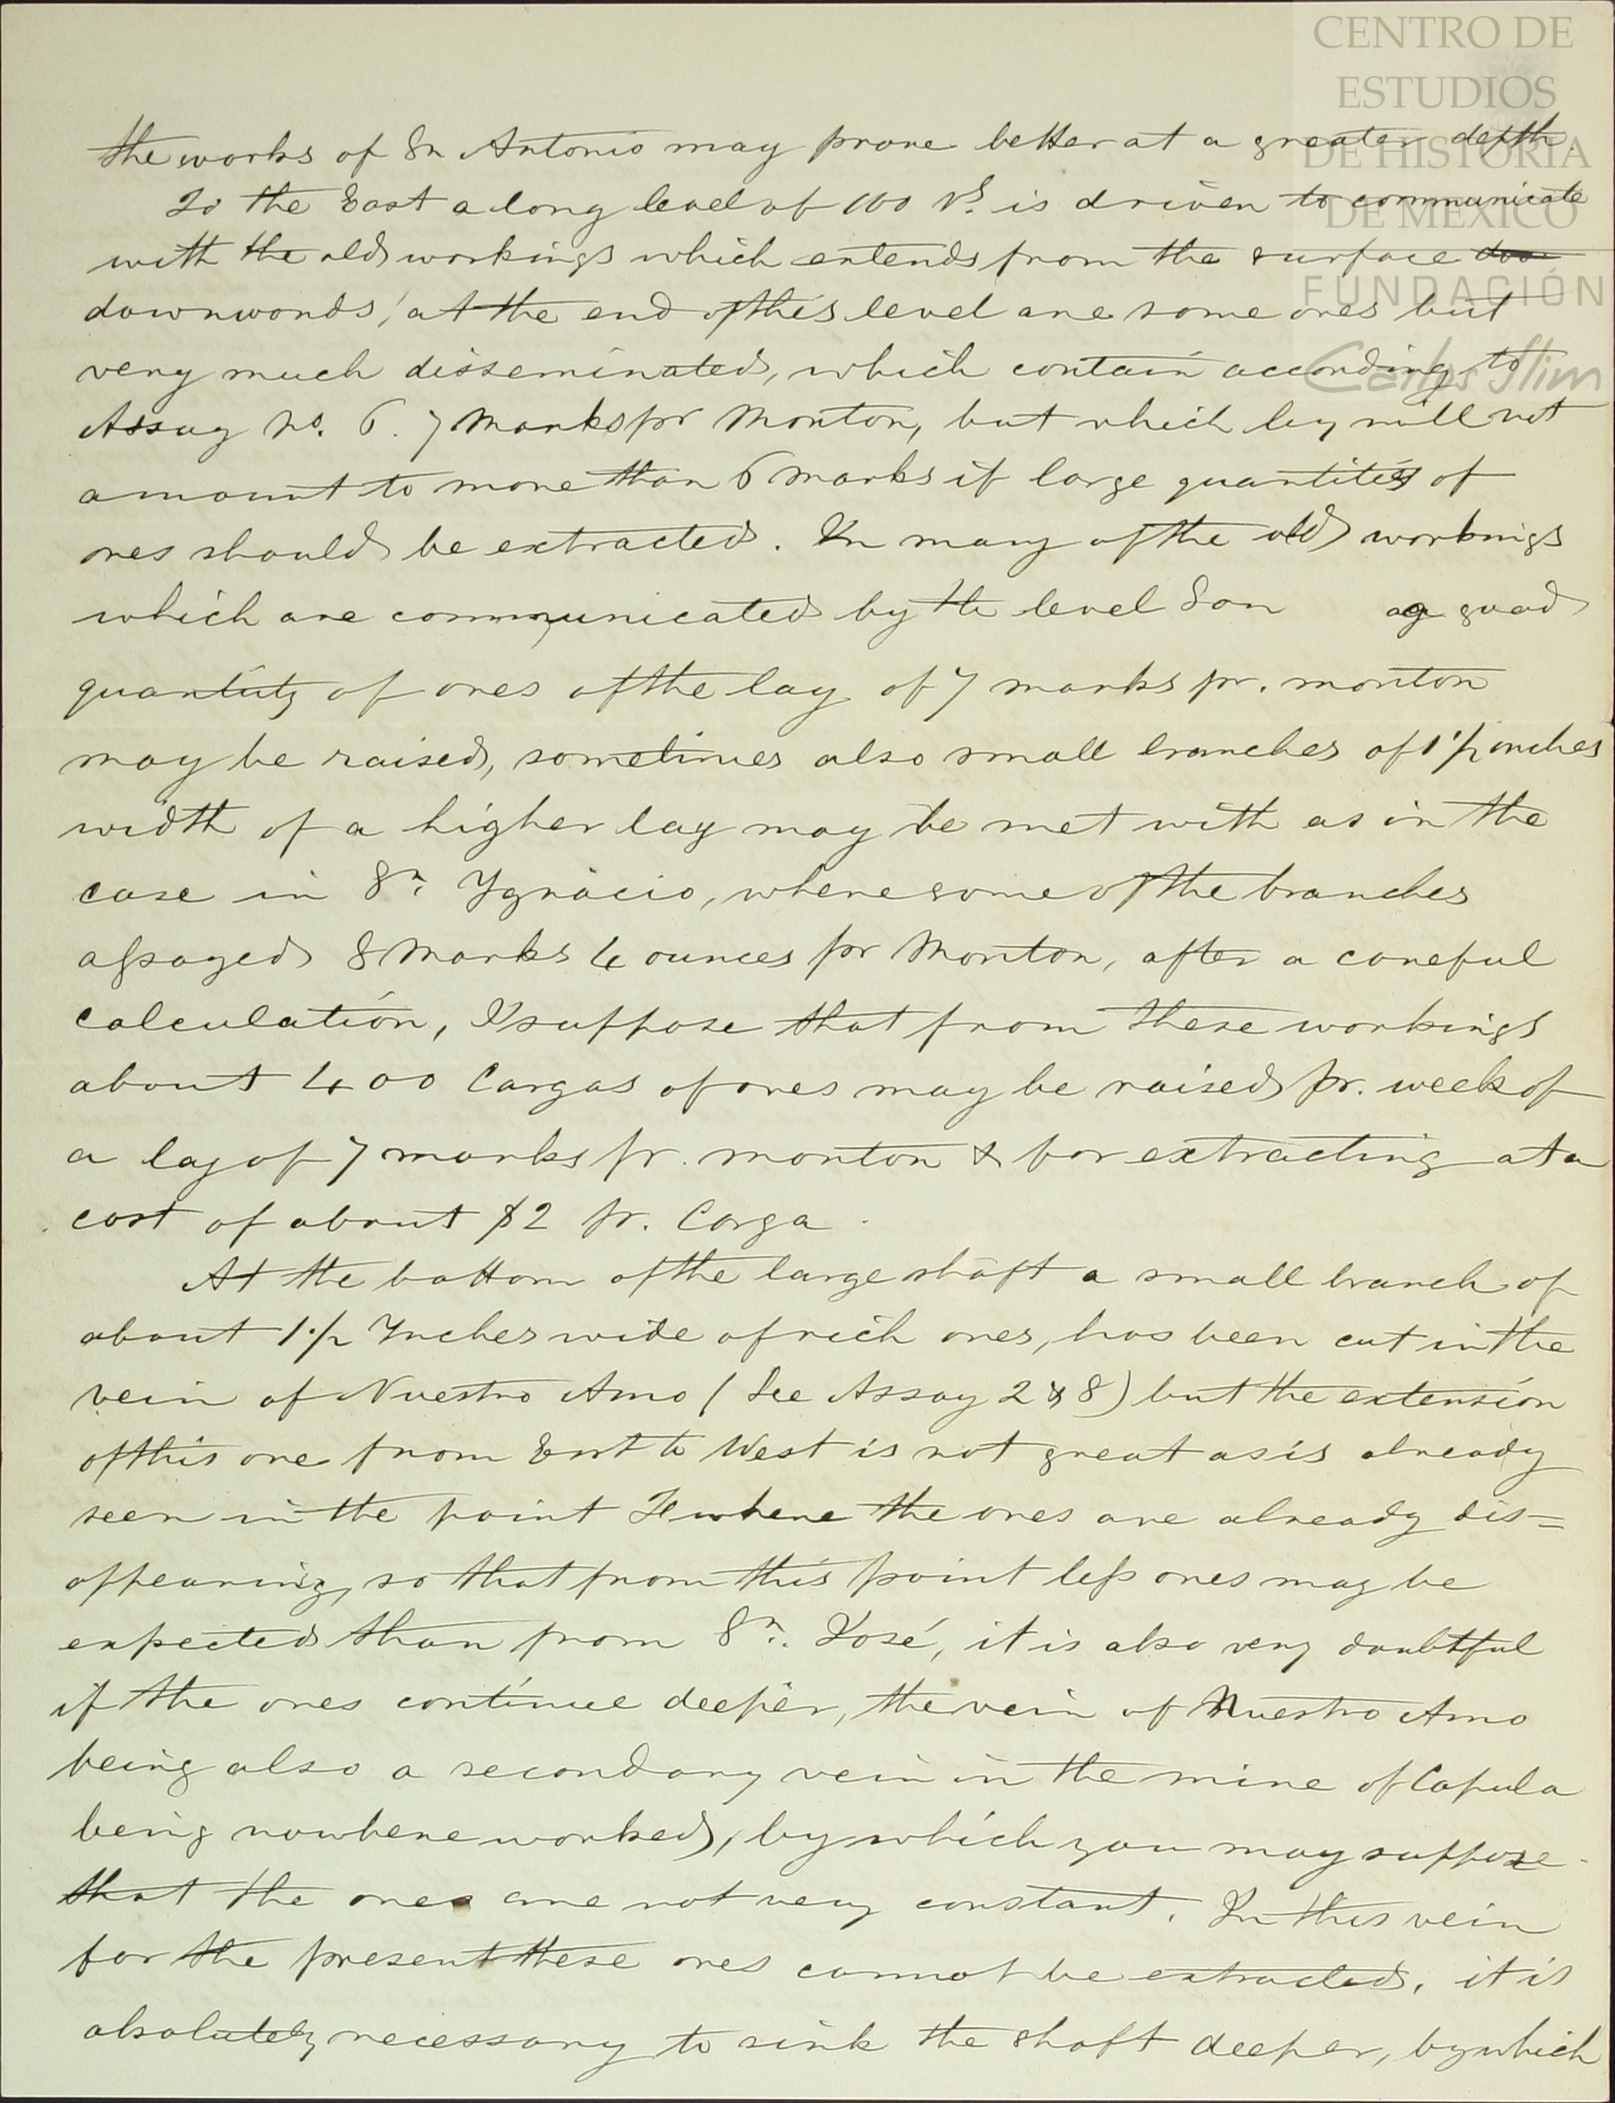 CENTRO DE
ESTUDIOS
DE HISTORIA
DE MEXICO
FUNDACIÓN
Carlos Slim
the works of Sn Antonio may prove better at a greater depth.
To the East a long level of 100 Vs. is driven to communicate
with the old workings which extends from the surface
downwords, at the end of this level are some ores but
very much disseminated, which contain according to
Assay No. 6. 7 Marks pr Monton, but which ley will not
amount to more than 6 marks if large quantities of
ores should be extracted. In many of the old workings
which are communicated by the level San a good
quantity of ores of the lay of 7 marks pr. monton
may be raised, sometimes also small branches of 1 1/2 inches
width of a higher lay may be met with as in the
case in Sn. Ygnacio, where some of the branches
assayed 8 Marks 4 ounces pr Monton, after a careful
calculation, I suppose that from these workings
about 400 Cargas of ores may be raised pr. week of
a lay of 7 marks pr. monton & for extracting at a
cost of about $2 pr. Carga.
At the bottom of the large shaft a small branch of
about 1 1/2 Ynches wide of rich ores, has been cut in the
vein of Nuestro Amo (See Assay 2 & 8) but the extension
of this ore from East to West is not great as is already
seen in the point where the ores are already dis=
appearing, so that from this point less ores may be
expected than from Sn. José, it is also very doubtful
if the ores continue deeper, the vein of Nuestro Amo
being also a secondary vein in the mine of Capula
being nowhere worked, by which you may suppose
that the ores are not very constant. In this vein
for the present these ores cannot be extracted, it is
absolutely necessary to sink the shaft deeper, by which